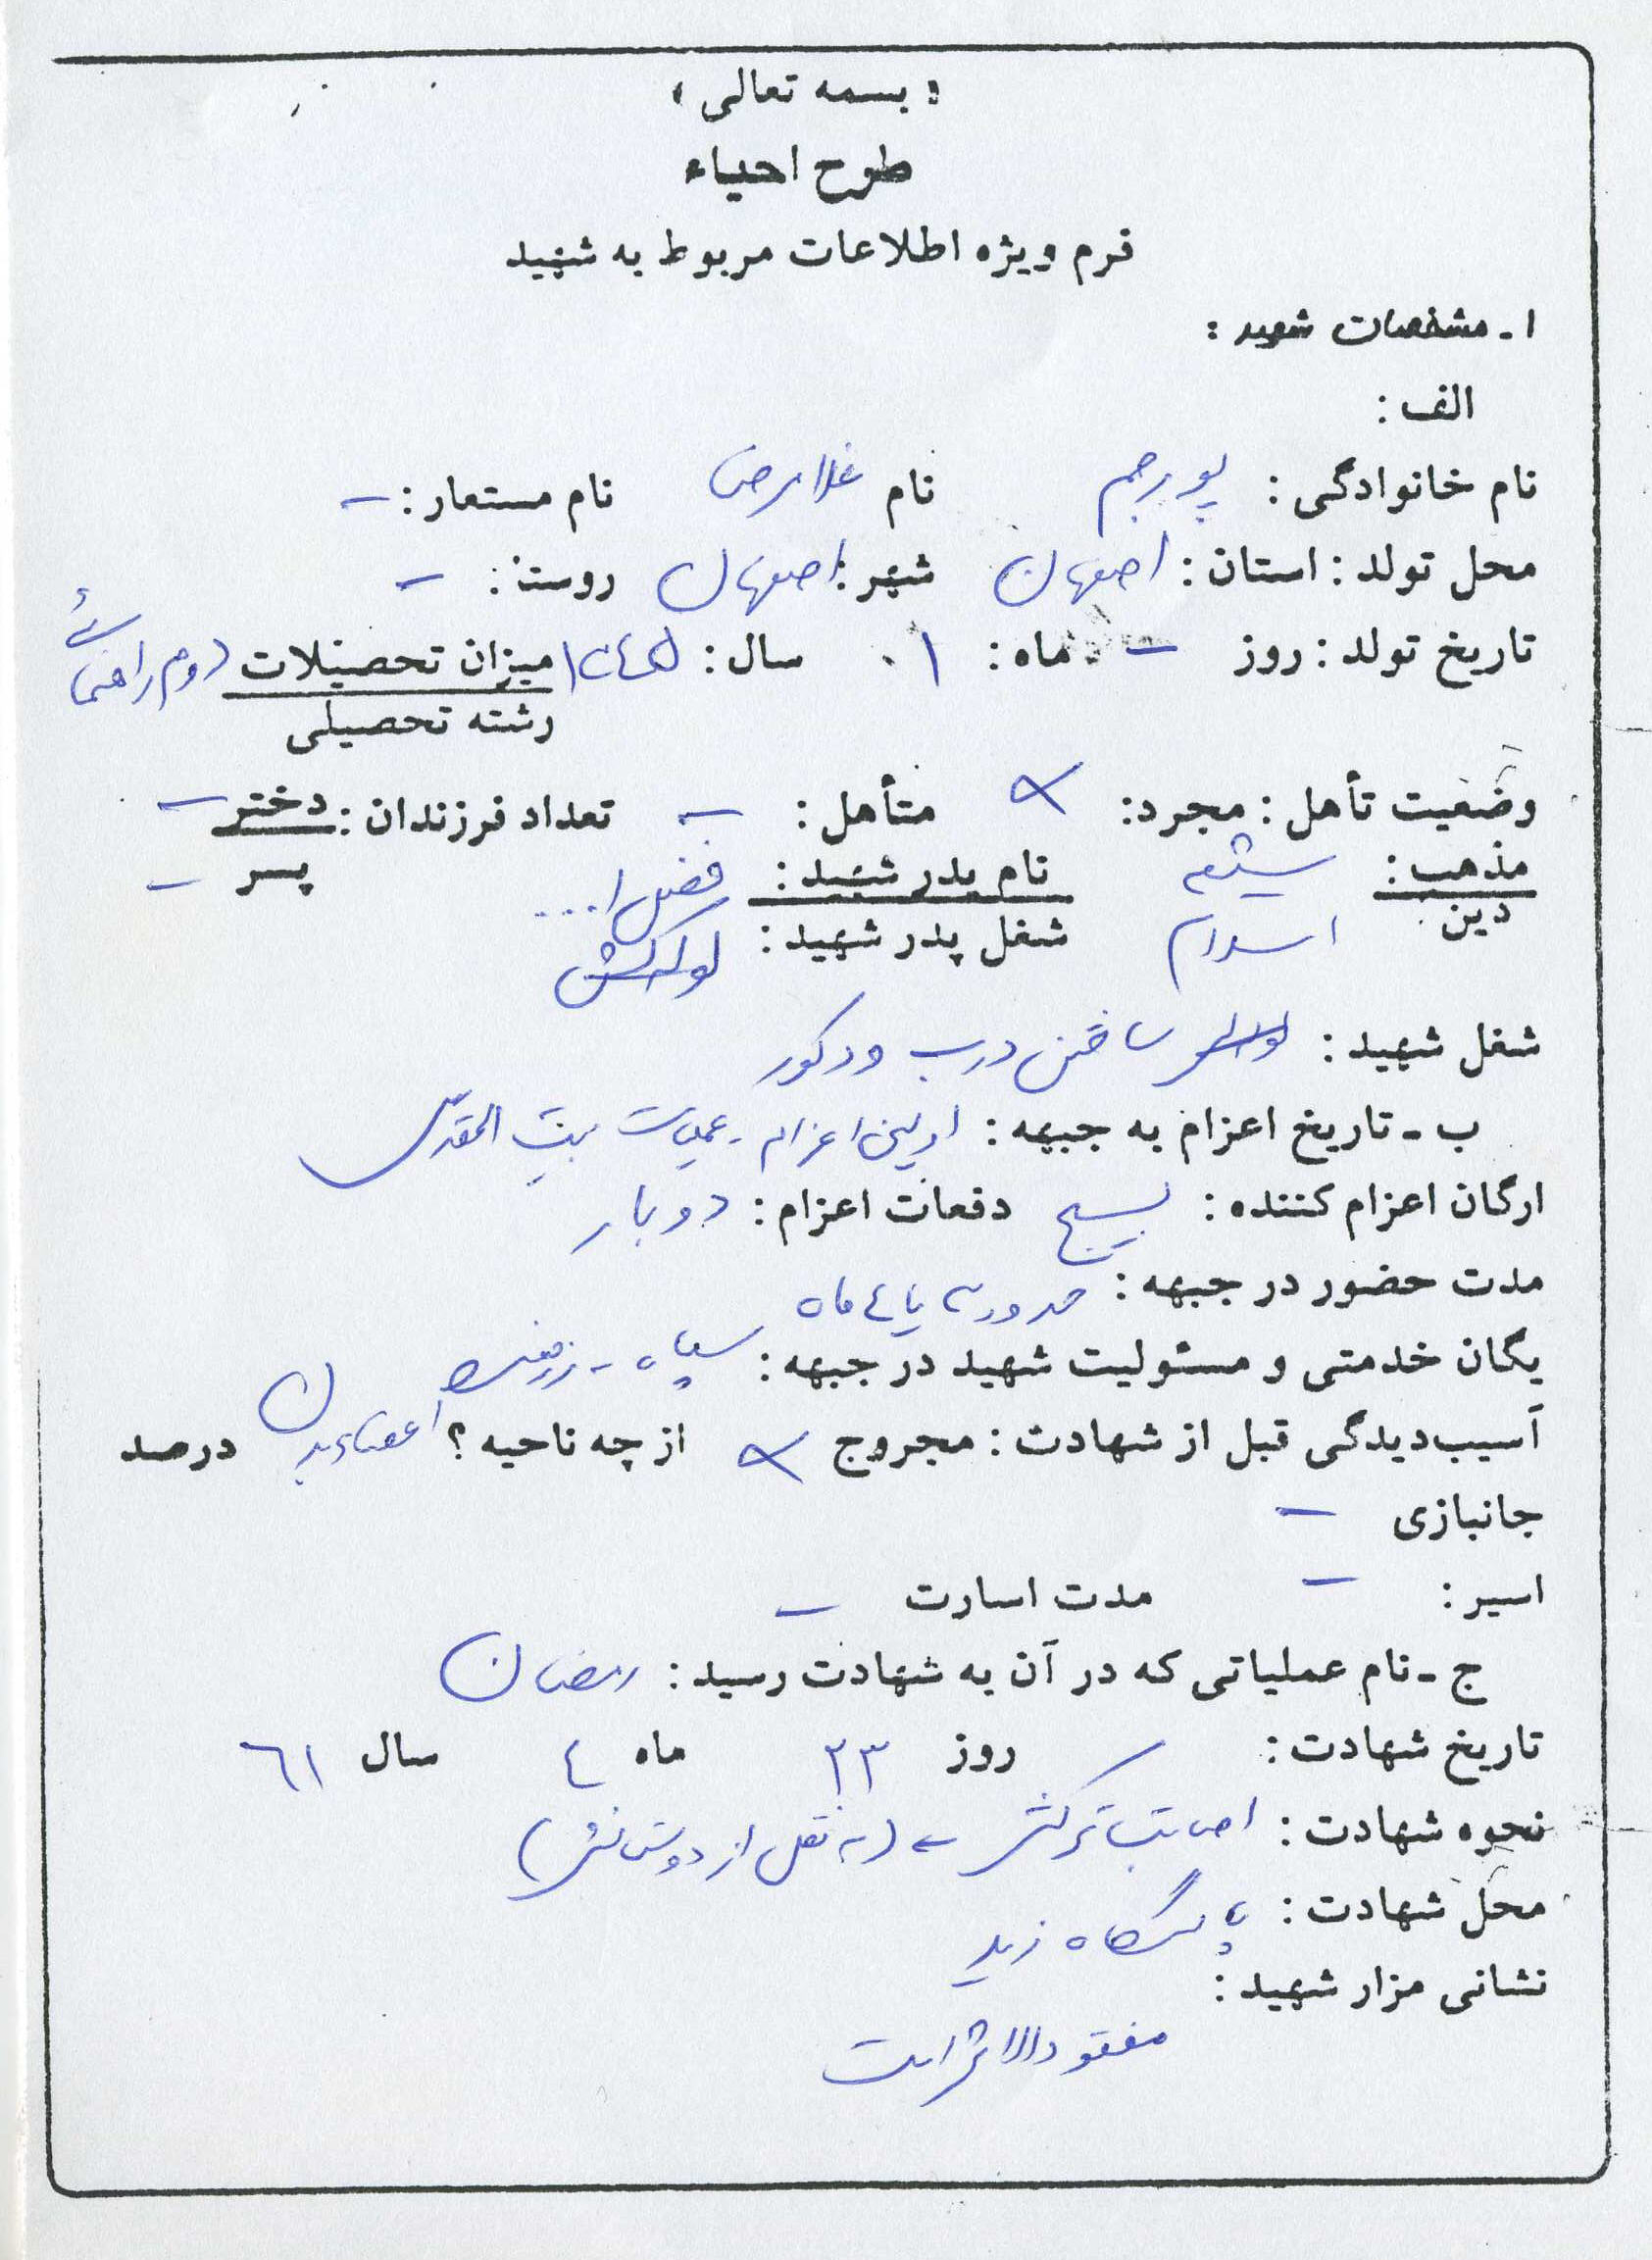 « بسمه تعالی »
طرح احیاء
فرم ویژه اطلاعات مربوط به شهید
۱ـ مشخصات شهید :
الف :
نام خانوادگی : پور جم نام غلامرضا نام مستعار : –
محل تولد : استان : اصفهان شهر : اصفهان روستا : –
تاریخ تولد : روز – ماه : ۰۱ سال : ۱۳۴۵ میزان تحصیلات دوم راهنمائی
رشته تحصیلی
وضعیت تأهل : مجرد : × متأهل : – تعداد فرزندان : دختر –
پسر –
مذهب : شیعه نام پدر شهید : فضل ا...
دین اسلام شغل پدر شهید : لوله‌کش
شغل شهید : ساختن درب و دکور
ب ـ تاریخ اعزام به جبهه : اولین اعزام ـ عملیات بیت المقدس
ارگان اعزام کننده : بسیج دفعات اعزام : دو بار
مدت حضور در جبهه : حدود ۳ یا ۴ ماه
یگان خدمتی و مسئولیت شهید در جبهه : سپاه - رزمنده
آسیب‌دیدگی قبل از شهادت : مجروح × از چه ناحیه ؟ اعضاء بدن درصد
جانبازی –
اسیر : – مدت اسارت –
ج ـ نام عملیاتی که در آن به شهادت رسید : رمضان
تاریخ شهادت : روز ۲۳ ماه ۴ سال ۶۱
نحوه شهادت : اصابت ترکش – (به نقل از دوستانش)
محل شهادت : پاسگاه زید
نشانی مزار شهید :
مفقود الاثر است